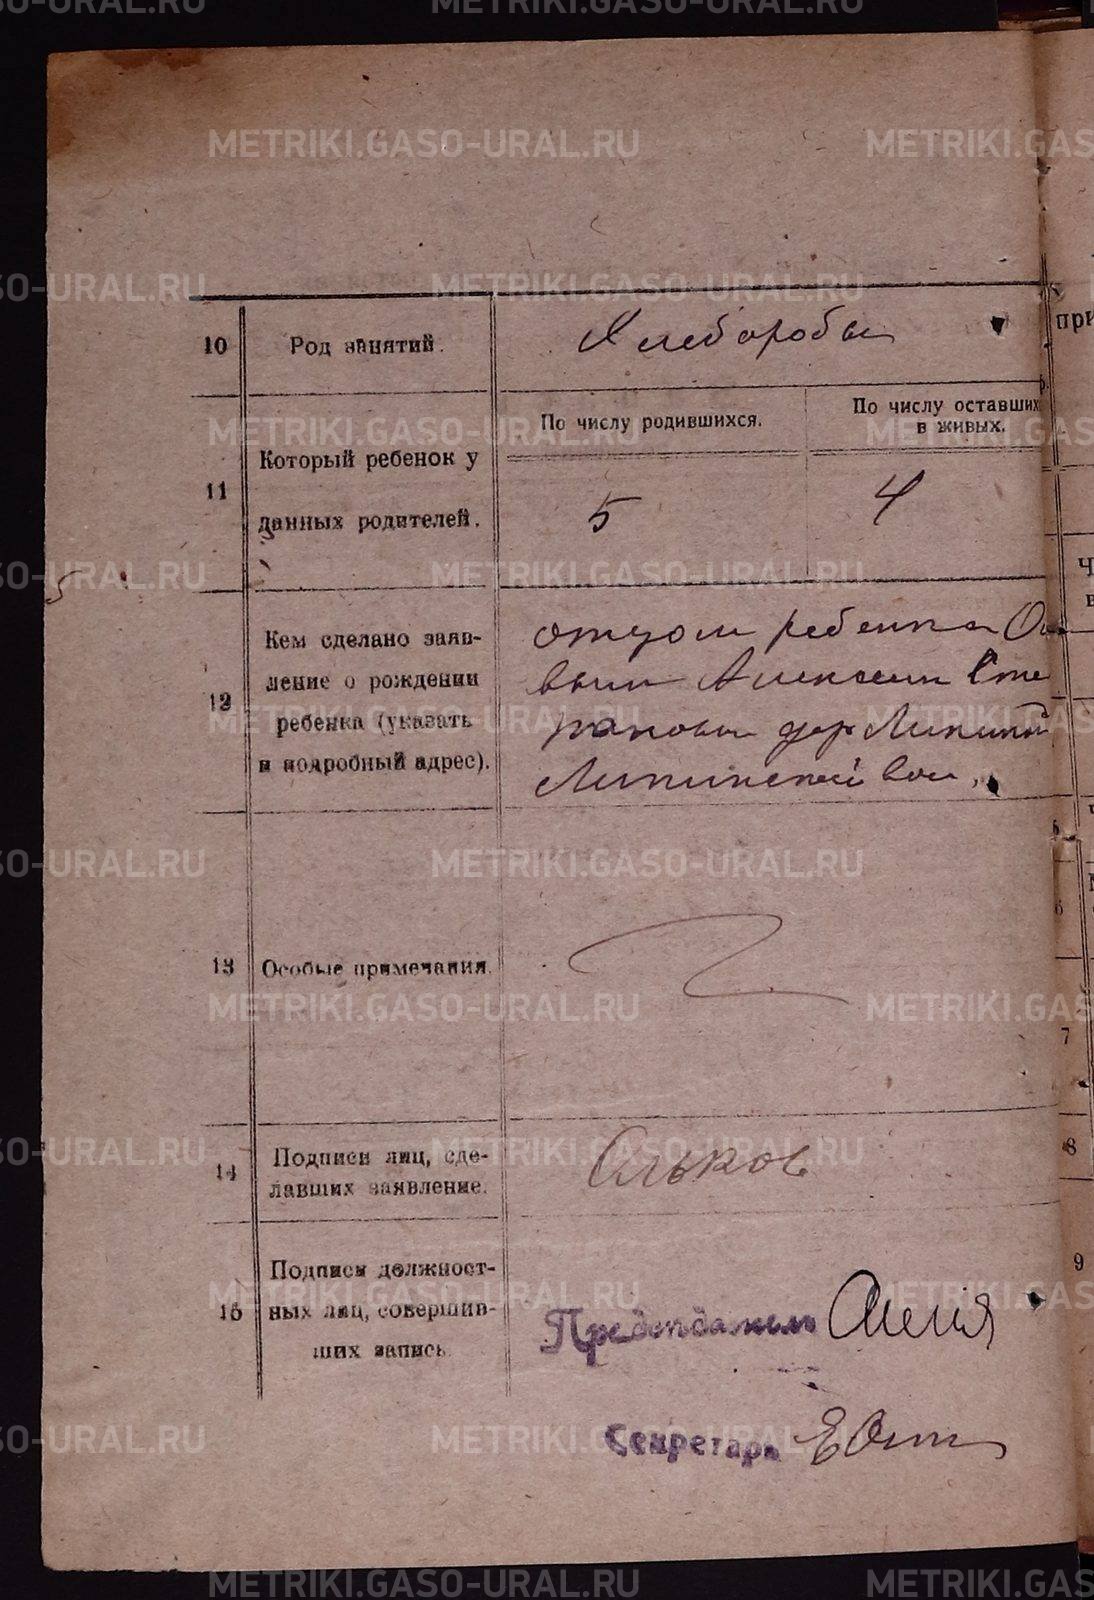 10
Род занятий.
Хлеборобы
11
Который ребенок у
данных родителей.
По числу родившихся.
По числу оставших
в живых.
5
4
12
Кем сделано заяв-
ление о рождении
ребенка (указать
и подробный адрес).
отцом ребенка
Алексеем Сте
пановым дер
Липинской вол.
13
Особые примечания.
14
Подписи лиц, сде-
лавших заявление.
Ольков
15
Подписи должност-
ных лиц, совершив-
ших запись.
Председатель
Секретарь
при
6
7
8
9
METRIKI.GASO-URAL.RU